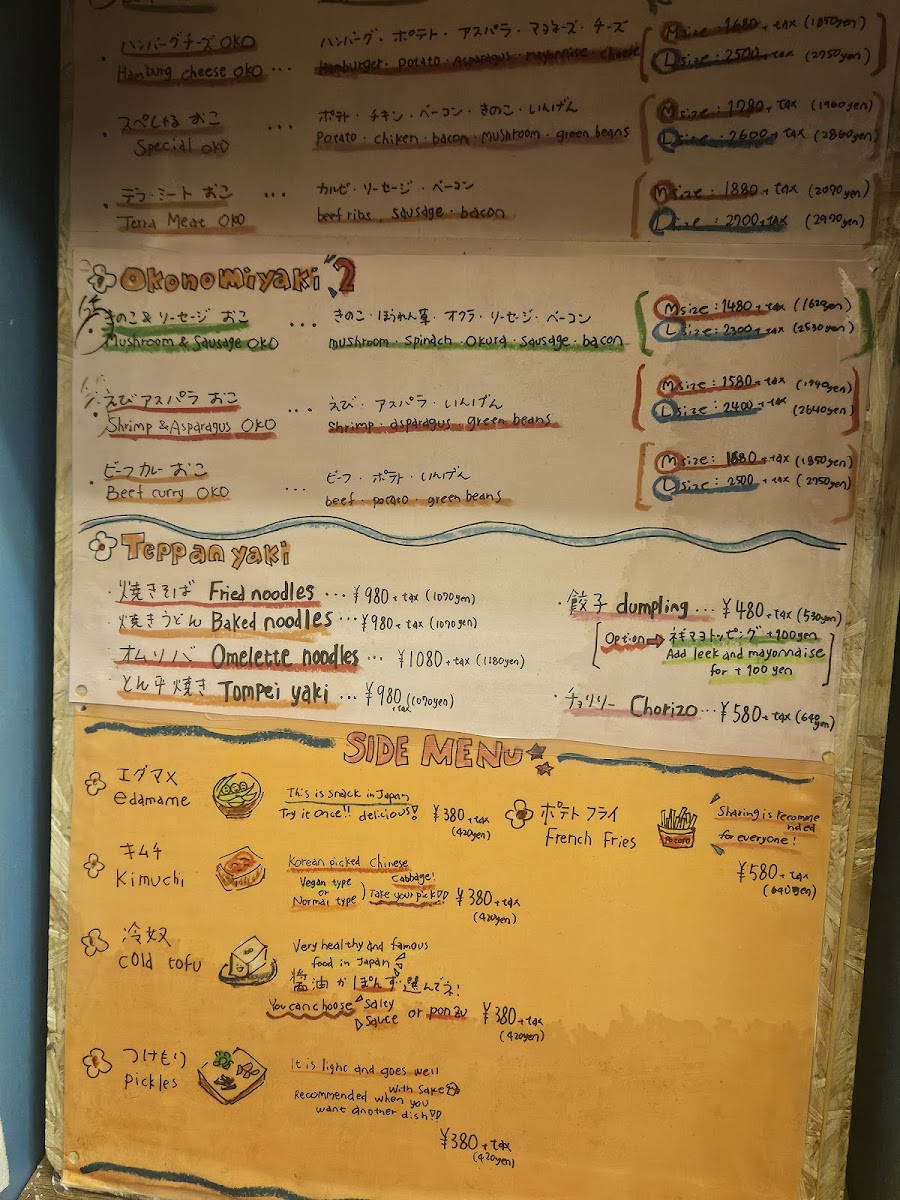 ハンバーグチーズ OKO
Hamburg cheese OKO ...
ハンバーグ・ポテト・アスパラ・マヨネーズ・チーズ
Hamburger・potato・Asparagus・mayonnise・cheese
M size:1680+tax (1850yen)
L size:2500+tax (2750yen)
スペしゃる おこ
Special OKO ...
ポテト・チキン・ベーコン・きのこ・いんげん
Potato・chiken・bacon・mushroom・green beans
M size:1780+tax (1960yen)
L size:2600+tax (2860yen)
テラ・ミート おこ ...
Terra Meat OKO
カルビ・ソーセージ・ベーコン
beef ribs. sausage・bacon
M size:1880+tax (2070yen)
L size:2700+tax (2970yen)
Okonomiyaki 2
きのこ&ソーセージ おこ ...
Mushroom & Sausage OKO
きのこ・ほうれん草・オクラ・ソーセージ・ベーコン
mushroom・spinach okura・sausage・bacon
M size:1480+tax (1629yen)
L size:2300+tax (2530yen)
えびアスパラ おこ ...
Shrimp & Asparagus OKO
えび・アスパラ・いんげん
shrimp・asparagus・green beans
M size:1580+tax (1740yen)
L size:2400+tax (2640yen)
ビーフカレー おこ
Beef curry OKO ...
ビーフ・ポテト・いんげん
beef・potato・green beans
M size: +tax (1850yen)
L size:2500+tax (2750yen)
Teppan yaki
焼きそば Fried noodles ... ¥980+tax (1070yen)
焼きうどん Baked noodles ... ¥980+tax (1070yen)
オムソバ Omelette noodles ... ¥1080+tax (1180yen)
とん平焼き Tompei yaki ... ¥980+tax (1070yen)
餃子 dumpling ... ¥480+tax (530yen)
Option→ネギマヨトッピング+100yen
Add leek and mayonnaise
for +100 yen
チョリソー Chorizo ... ¥580+tax (640yen)
SIDE MENU
エダマメ
edamame
This is snack in Japan
Try it once!! delicious! ¥380+tax
(420yen)
ポテトフライ
French Fries
POTATO
Sharing is recommended
for everyone!
¥580+tax
(640yen)
キムチ
Kimuchi
Korean picked Chinese
Cabbage!
Vegan type
or
Normal type
Take your pick!! ¥380+tax
(420yen)
冷奴
cold tofu
Very healthy and famous
food in Japan
醤油かぽんず選んでネ!
You can choose salty
sauce or ponzu ¥380+tax
(420yen)
つけもり
pickles
It is light and goes well
with sake
Recommended when you
want another dish!!
¥380+tax
(420yen)